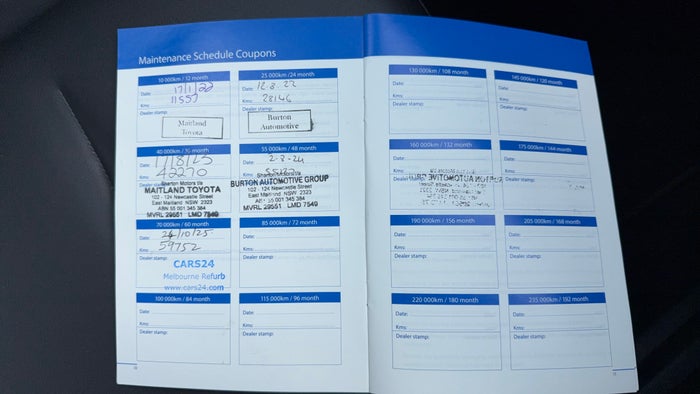 Maintenance Schedule Coupons
10 000km / 12 month
Date: 17/1/22
Kms: 11557
Dealer stamp:
Maitland
Toyota
25 000km /24 month
Date: 12.8.22
Kms: 28146
Dealer stamp:
Burton
Automotive
40 000km / 36 month
17/8/23
42270
Sharton Motors t/a
MAITLAND TOYOTA
102 - 124 Newcastle Street
East Maitland NSW 2323
ABN 55 001 345 384
MVRL 29551 LMD 7549
55 000km / 48 month
2-2-24
Sharton Motors t/a
BURTON AUTOMOTIVE GROUP
102 - 124 Newcastle Street
East Maitland NSW 2323
ABN 55 001 345 384
MVRL 29551 LMD 7549
70 000km / 60 month
Date: 24/10/25
Kms: 59752
Dealer stamp:
CARS24
Melbourne Refurb
www.cars24.com
85 000km / 72 month
Date:
Kms:
Dealer stamp:
100 000km / 84 month
Date:
Kms:
Dealer stamp:
115 000km / 96 month
Date:
Kms:
Dealer stamp:
130 000km / 108 month
Date:
Kms:
Dealer stamp:
145 000km / 120 month
Date:
Kms:
Dealer stamp:
160 000km / 132 month
Date:
175 000km / 144 month
Date:
Kms:
Dealer stamp:
190 000km / 156 month
Date:
Kms:
Dealer stamp:
205 000km / 168 month
Date:
Kms:
Dealer stamp:
220 000km / 180 month
Date:
Kms:
Dealer stamp:
235 000km / 192 month
Date:
Kms:
Dealer stamp: